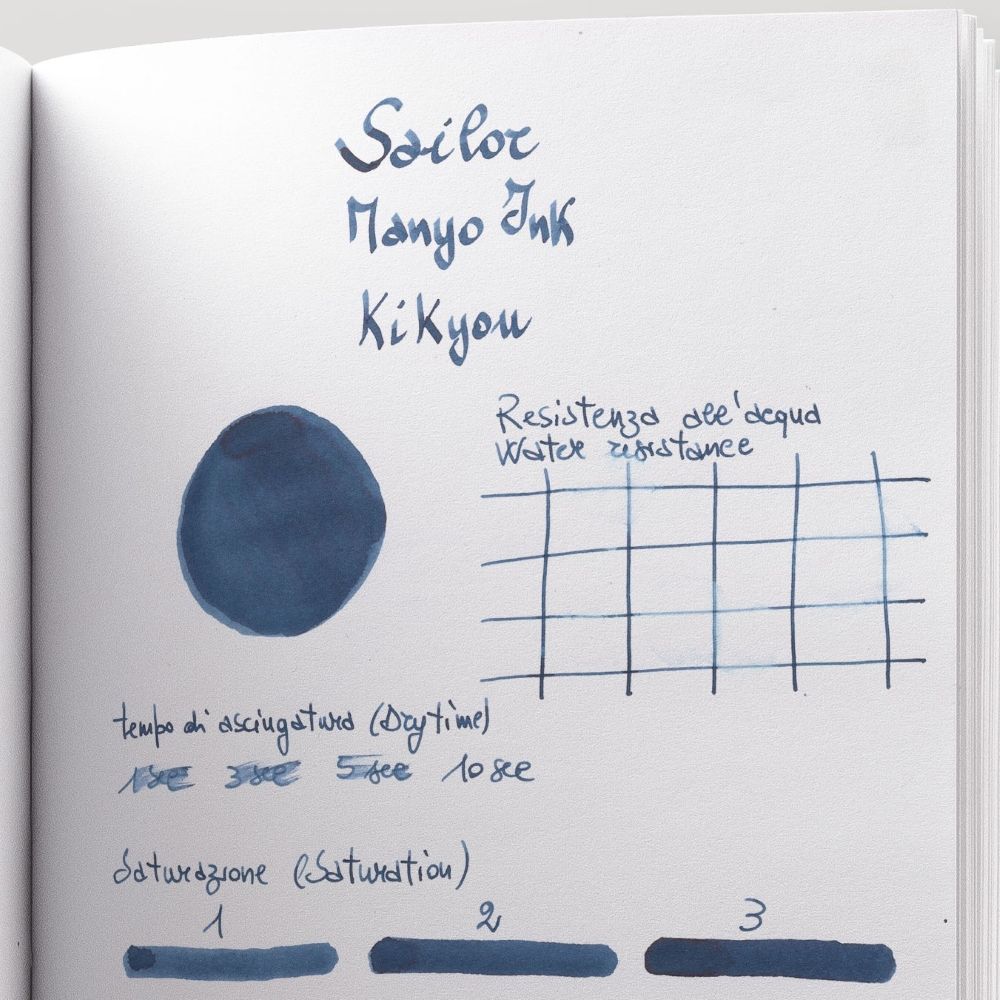 Sailor
Manyo Ink
Kikyou
Resistenza all'acqua
Water resistance
tempo di asciugatura (Dry time)
1 sec 3 sec 5 sec 10 sec
Saturazione (Saturation)
1 2 3